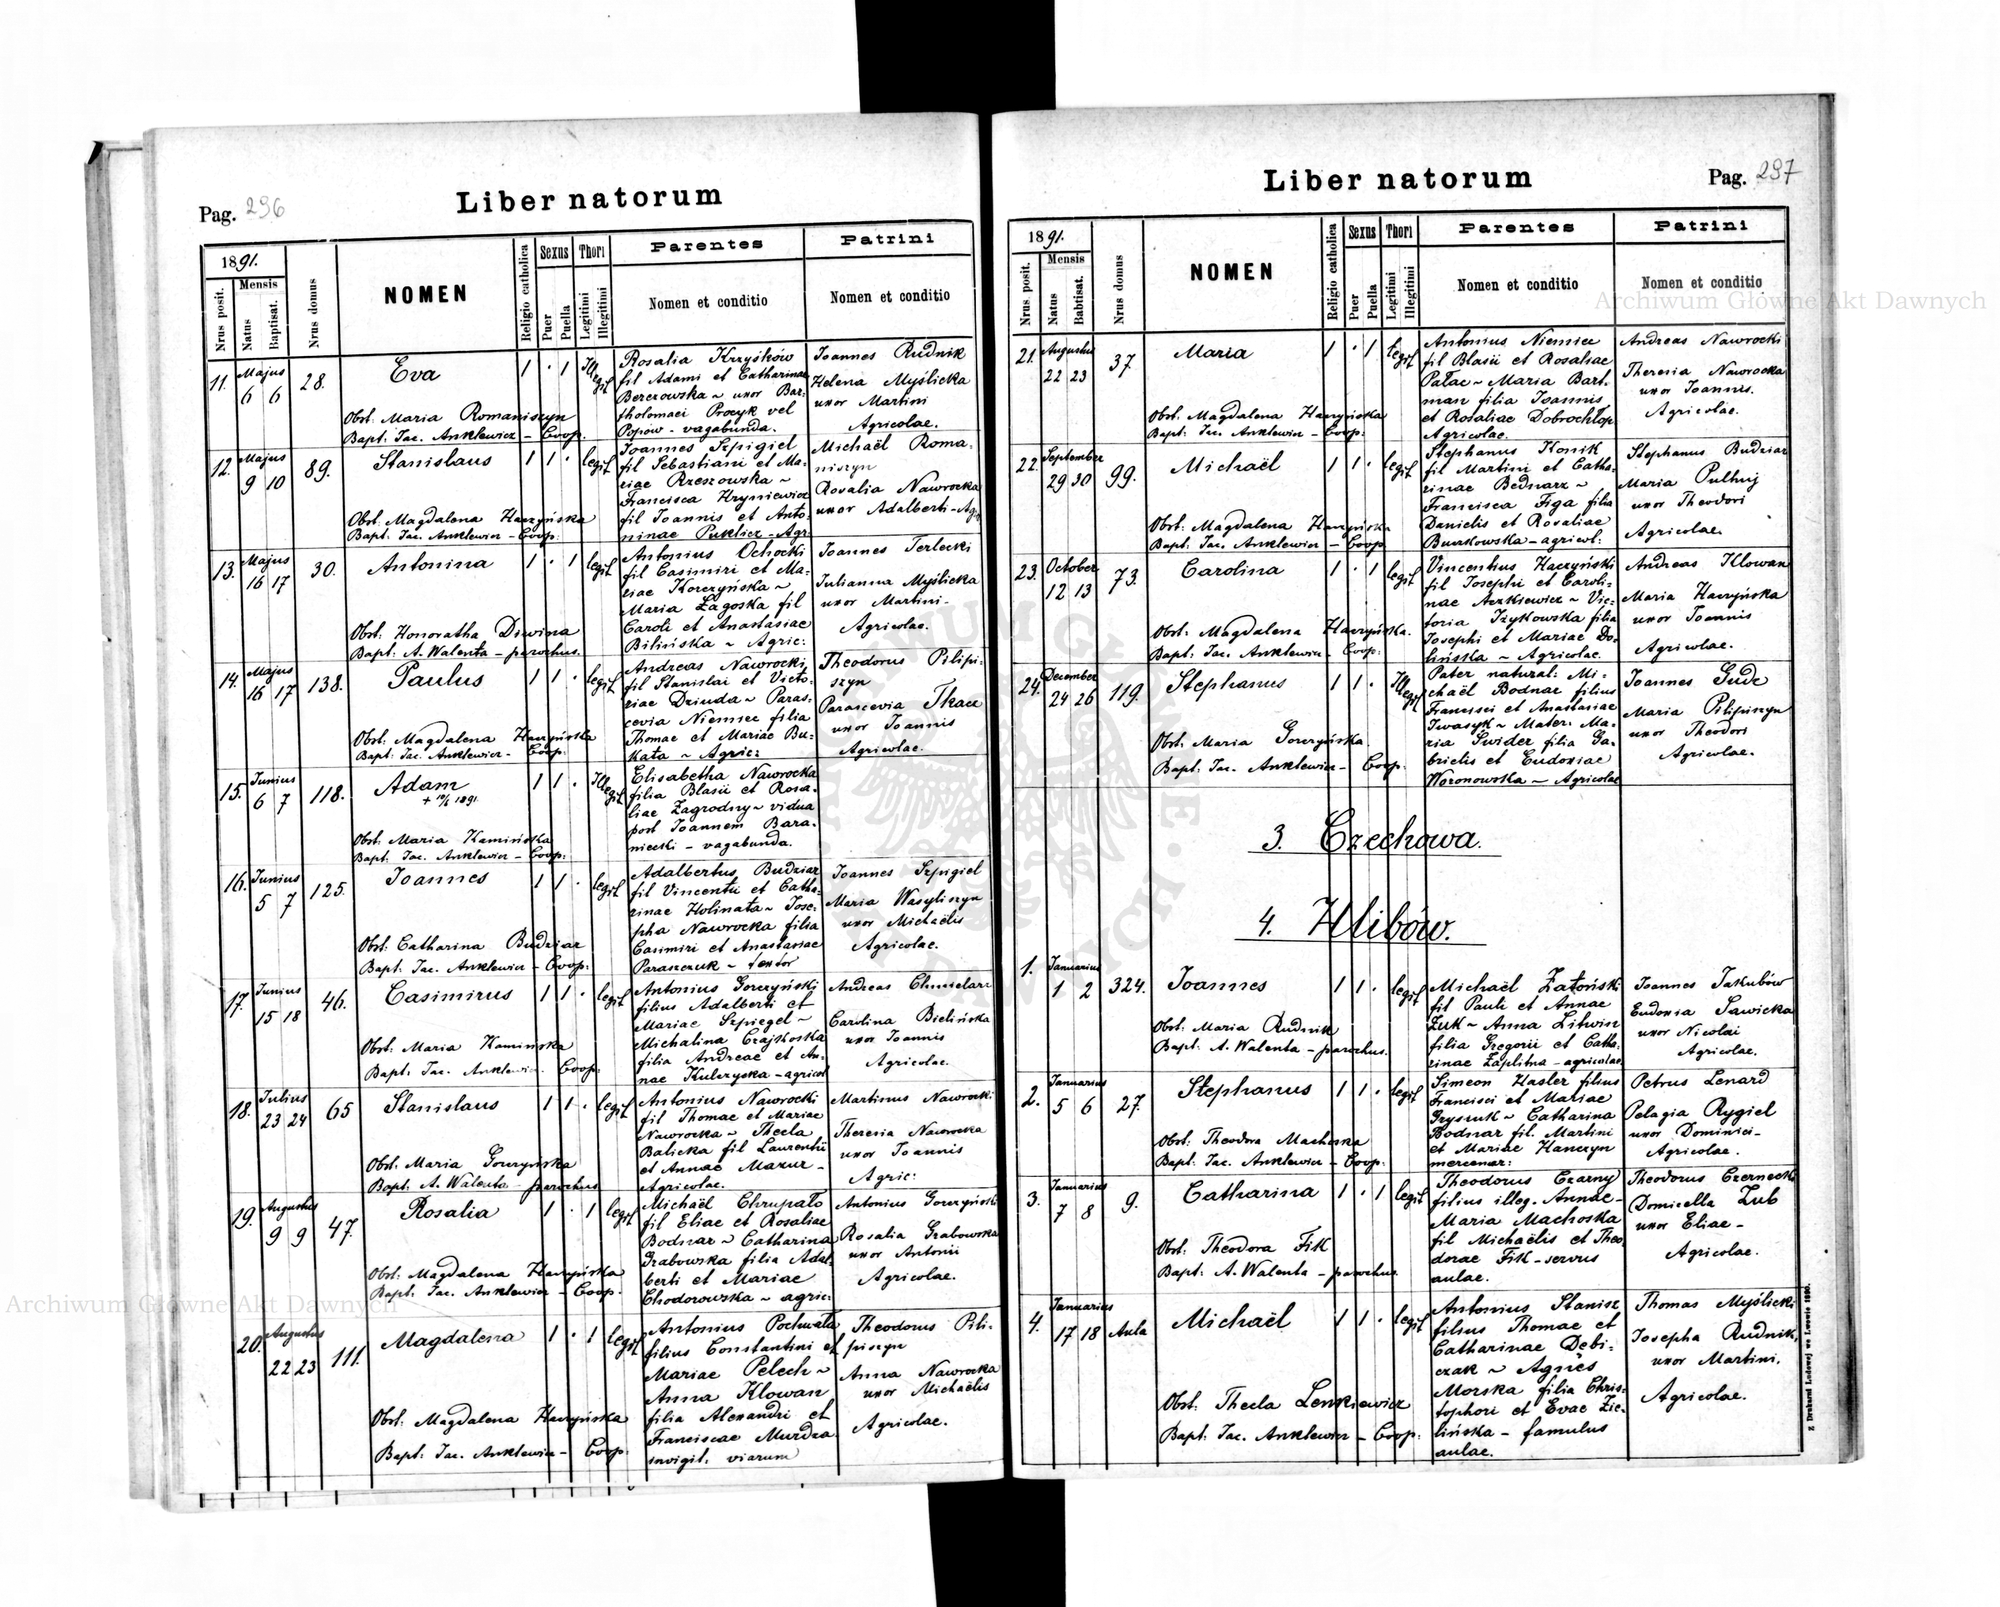 Liber natorum
Pag. 296
1891.
Nrus posit.
Mensis
Natus
Baptisat.
Nrus domus
NOMEN
Religio catholica
Sexus
Puer
Puella
Thori
Legitimi
Illegitimi
Parentes
Nomen et conditio
Patrini
Nomen et conditio
11. Majus 6 6 28. Eva 1 · 1 Illegit
Obst. Maria Romaniszyn
Bapt: Jac. Anklewicz - Coop.
Rosalia Krzyśków
fil Adami et Catharinae
Berezowska ~ uxor Bar-
tholomaei Procyk vel
Popów - vagabunda.
Joannes Rudnik
Helena Myślicka
uxor Martini
Agricolae.
12. Majus 9 10 89. Stanislaus 1 1 · legit
Obst: Magdalena Haczyńska
Bapt: Jac. Anklewicz - Coop:
Joannes Szpigiel
fil Sebastiani et Ma-
riae Rzeszowska ~
Francisca Hryniewicz
fil Joannis et Anto-
ninae Puklicz - Agr:
Michaël Roma-
niszyn
Rosalia Nawrocka
uxor Adalberti - Agr
13. Majus 16 17 30. Antonina 1 · 1 legit
Obst: Honoratha Diwina
Bapt: A. Walenta - parochus.
Antonius Ochocki
fil Casimiri et Ma-
riae Korczyńska ~
Maria Łagoska fil
Caroli et Anastasiae
Bilińska ~ Agric:
Joannes Terlecki
Julianna Myślicka
uxor Martini -
Agricolae.
14. Majus 16 17 138. Paulus 1 1 · legit
Obst: Magdalena Haczyńska
Bapt: Jac. Anklewicz - Coop:
Andreas Nawrocki
fil Stanislai et Victo-
riae Dziuda ~ Paras-
cevia Niemiec filia
Thomae et Mariae Bu-
kata ~ Agric:
Theodorus Pilipi-
szyn
Parascevia Tkacz
uxor Joannis
Agricolae.
15. Junius 6 7 118. Adam 1 1 · Illegit
Obst: Maria Kamińska
Bapt: Jac. Anklewicz - Coop:
Elisabetha Nawrocka
filia Blasii et Rosa-
liae Zagrodny ~ vidua
post Joannem Bara-
niecki - vagabunda.
16. Junius 5 7 125. Joannes 1 1 · legit
Obst: Catharina Budziar
Bapt: Jac. Anklewicz - Coop:
Adalbertus Budziar
fil Vincentii et Catha-
rinae Holinata ~ Jose-
pha Nawrocka filia
Casimiri et Anastasiae
Paraszczuk ~
Joannes Szpigiel
Maria Wasyliszyn
uxor Michaëlis
Agricolae.
17. Junius 15 18 46. Casimirus 1 1 · legit
Obst: Maria Kamińska
Bapt: Jac. Anklewicz. Coop:
Antonius Gorczyński
filius Adalberti et
Mariae Szpiegel ~
Michalina Czajkoska
filia Andreae et An-
nae Kulczycka - agricol
Andreas Chmielarz
Carolina Bielińska
uxor Joannis
Agricolae.
18. Julius 23 24 65 Stanislaus 1 1 · legit
Obst: Maria Gorczyńska
Bapt: A. Walenta - parochus
Antonius Nawrocki
fil Thomae et Mariae
Nawrocka ~ Thecla
Balicka fil Laurentii
et Annae Mazur -
Agricolae.
Martinus Nawrocki
Theresia Nawrocka
uxor Joannis
Agric:
19. Augustus 9 9 47. Rosalia 1 · 1 legit
Obst: Magdalena Haczyńska
Bapt: Jac. Anklewicz - Coop.
Michaël Chrupało
fil Eliae et Rosaliae
Bodnar ~ Catharina
Grabowska filia Adal-
berti et Mariae
Chodorowska ~ agric:
Antonius Gorczyński
Rosalia Grabowska
uxor Antonii
Agricolae.
20. Augustus 22 23 111. Magdalena 1 · 1 legit
Obst: Magdalena Haczyńska
Bapt: Jac. Anklewicz - Coop:
Antonius Pochwała
filius Constantini et
Mariae Pelech ~
Anna Klowan
filia Alexandri et
Franciscae Murdza
invigil. viarum
Theodorus Pili-
piszyn
Anna Nawrocka
uxor Michaëlis
Agricolae.
Liber natorum
Pag. 297
1891.
Nrus. posit.
Mensis
Natus
Babtisat.
Nrus domus
NOMEN
Religio catholica
Sexus
Puer
Puella
Thori
Legitimi
Illegitimi
Parentes
Nomen et conditio
Patrini
Nomen et conditio
21. Augustus 22 23 37. Maria 1 · 1 legit
Obst. Magdalena Haczyńska
Bapt: Jac. Anklewicz - Coop:
Antonius Niemiec
fil Blasii et Rosaliae
Pałac ~ Maria Bart-
man filia Joannis
et Rosaliae Dobrochłop
Agricolae.
Andreas Nawrocki
Theresia Nawrocka
uxor Joannis.
Agricolae.
22. September 29 30 99. Michaël 1 1 · legit
Obst: Magdalena Haczyńska
Bapt: Jac. Anklewicz - Coop
Stephanus Konik
fil Martini et Catha-
rinae Bednarz ~
Francisca Figa filia
Danielis et Rosaliae
Burkowska - agricol:
Stephanus Budziar
Maria Pultuj
uxor Theodori
Agricolae.
23. October 12 13 73. Carolina 1 · 1 legit
Obst: Magdalena Haczyńska.
Bapt: Jac. Anklewicz - Coop:
Vincentius Haczyński
fil Josephi et Caroli-
nae Aczkiewicz ~ Vic-
toria Izykowska filia
Josephi et Mariae Do-
lińska ~ Agricolae.
Andreas Klowan
Maria Haczyńska
uxor Joannis
Agricolae.
24. December 24 26 119. Stephanus 1 1 · Illegit
Obst: Maria Gorczyńska.
Bapt: Jac. Anklewicz - Coop:
Pater natural: Mi-
chaël Bodnar filius
Francisci et Anastasiae
Iwasyk ~ Mater: Ma-
ria Świder filia Ga-
brielis et Eudoxiae
Woronowska ~ Agricolae
Joannes Gudz
Maria Pilipiszyn
uxor Theodori
Agricolae.
3. Czechowa.
4. Hlibów.
1. Januarius 1 2 324. Joannes 1 1 · legit
Obst: Maria Rudnik
Bapt: A. Walenta - parochus.
Michaël Zatoński
fil Pauli et Annae
Żuk ~ Anna Litwin
filia Gregorii et Catha-
rinae Zaplitna - agricolae.
Joannes Jakubów
Eudoxia Sawicka
uxor Nicolai
Agricolae.
2. Januarius 5 6 27. Stephanus 1 1 · legit
Obst: Theodora Machoska
Bapt: Jac. Anklewicz - Coop:
Simeon Hasler filius
Francisci et Mariae
Gryszuk ~ Catharina
Bodnar fil. Martini
et Mariae Hanczyn
mercenar:
Petrus Lenard
Pelagia Rygiel
uxor Dominici -
Agricolae.
3. Januarius 7 8 9. Catharina 1 · 1 legit
Obst: Theodora Fik
Bapt: A. Walenta - parochus.
Theodorus Czarny
filius illeg. Annae -
Maria Machoska
fil Michaëlis et Theo-
dorae Fik - servus
aulae.
Theodorus Czernecki
Domicella Zub
uxor Eliae -
Agricolae.
4. Januarius 17 18 Aula Michaël 1 1 · legit
Obst: Thecla Lenkiewicz
Bapt: Jac. Anklewicz - Coop:
Antonius Stanisz
filius Thomae et
Catharinae Dębi-
czak ~ Agnes
Morska filia Chris-
tophori et Evae Zie-
lińska - famulus
aulae.
Thomas Myślicki
Josepha Rudnik,
uxor Martini.
Agricolae.
Z Drukarni Ludowej we Lwowie 1890.
Archiwum Główne Akt Dawnych
Archiwum Główne Akt Dawnych